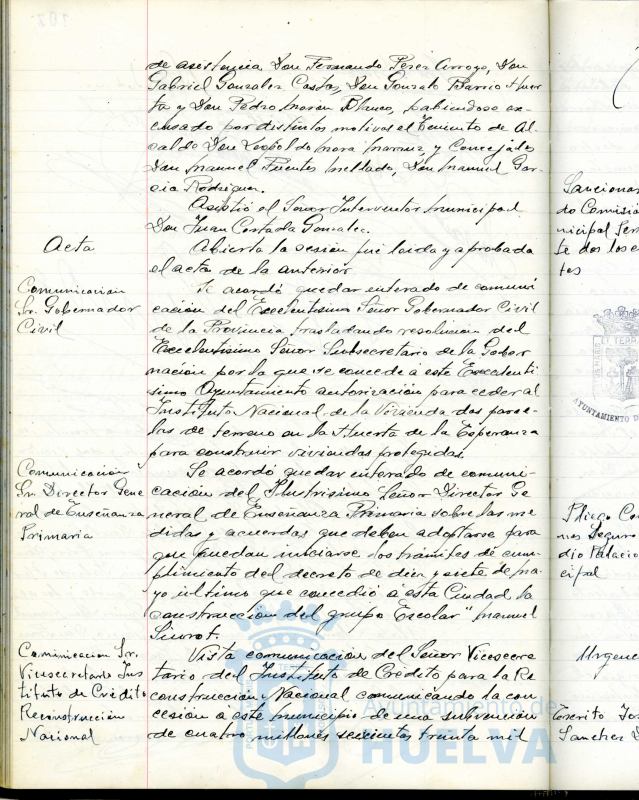 de asistencia, Don Fernando Perez Arroyo, Don
Gabriel Gonzalez Costas, Don Gonzalo Barrio Huer
ta y Don Pedro Moron Blanco, habiendose ex-
cusado por distintos motivos el Teniente de Al-
calde Don Leopoldo Mora y Concejales
Don Manuel Fuentes Mellado, Don Manuel Gar-
cia Rodriguez.
Asistió el Señor Interventor Municipal
Don Juan Costada Gonzalez.
Acta
Abierta la sesión fué leida y aprobada
el acta de la anterior
Comunicacion
Sr. Gobernador
Civil
Se acordó quedar enterado de comuni
cación del Excelentisimo Señor Gobernador Civil
de la Provincia trasladando resolucion del
Excelentisimo Señor Subsecretario de la Gober
nación por la que se concede a este Excelenti
simo Ayuntamiento autorización para ceder al
Instituto Nacional de la Vivienda dos parce-
las de terreno en la Huerta de la Esperanza
para construir viviendas protegidas.
Comunicacion
Sr. Director Gene
ral de Enseñanza
Primaria
Se acordó quedar enterado de comuni-
cacion del Ilustrisimo Señor Director Ge
neral de Enseñanza Primaria sobre las me
didas y acuerdos que deben adoptarse para
que puedan iniciarse los trámites de cum-
plimiento del decreto de diez y siete de ma-
yo último que concedió a esta Ciudad la
construccion del grupo Escolar "Manuel
Siurot.
Comunicacion Sr.
Vicesecretario Ins
tituto de Crédito
Reconstrucción
Nacional
Vista comunicación del Señor Vicesecre
tario del Instituto de Crédito para la Re
construcción Nacional comunicando la con
cesión a este Municipio de una subvención
de cuatro millones seiscientas treinta mil
Sancionar
do Comisió
nicipal Per
te dos los e
tos
AYUNTAMIENTO D
Pliego Con
nes Seguro
dio Palacio
cipal
Urgenc
Escrito Jos
Sanchez D
Ayuntamiento de
HUELVA